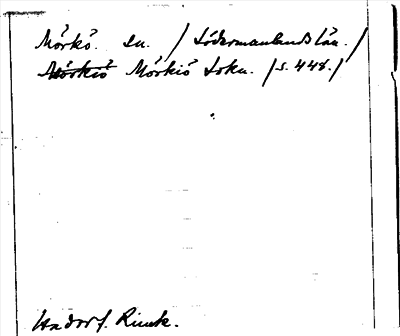 Mörkö. sn. /Södermanlands län./
Mörkiö Mörkiö Sokn. /s. 448./
Hadorf. Rimk.